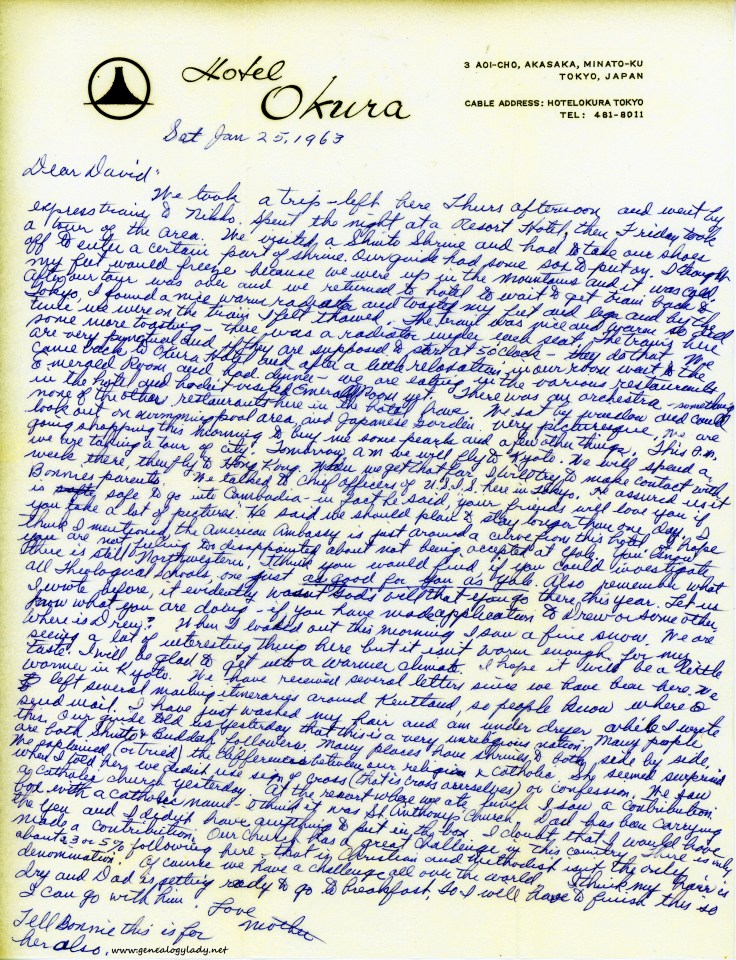 Hotel
Okura
3 AOI-CHO, AKASAKA, MINATO-KU
TOKYO, JAPAN
CABLE ADDRESS: HOTELOKURA TOKYO
TEL: 481-8011
Sat Jan 25, 1963
Dear David:
We took a trip - left here Thurs afternoon and went by
express train to Nikko. Spent the night at a Resort Hotel, then Friday took
a tour of the area. We visited a Shinto Shrine and had to take our shoes
off to enter a certain part of shrine. Our guide had some sox to put on. I thought
my feet would freeze because we were up in the mountains and it was cold.
After our tour was over and we returned to hotel to wait to get train back to
Tokyo, I found a nice warm radiator and toasted my feet and legs and by the
time we were on the train I felt thawed. The train was nice and warm so did
some more toasting - there was a radiator under each seat. The trains here
are very punctual and if they are supposed to start at 5 o'clock - they do that. We
came back to Okura Hotel and after a little relaxation in our room went to the
Emerald Room and had dinner - we are eating in the various restaurants
in the hotel and hadn't visited Emerald Room yet. There was an orchestra - something
none of the other restaurants here in the hotel have. We sat by window and could
look out on swimming pool area and Japanese Garden very picturesque. We are
going shopping this morning to buy me some pearls and a few other things. This P.M.
we are taking a tour of city. Tomorrow A.M. we will fly to Kyoto. We will spend a
week there, then fly to Hong Kong. When we get that far I will try to make contact with
Bonnie's parents. We talked to chief officers of U.S.I.S. here in Tokyo. He assured us it
is safe to go into Cambodia - in fact he said your friends will love you if
you take a lot of pictures. He said we should plan to stay longer than one day. I
think I mentioned the American Embassy is just around a curve from this hotel. I hope
you are not feeling too disappointed about not being accepted at Yale. You know
there is still Northwestern. I think you would find if you could investigate
all Theological schools, one just as good for you as Yale. Also remember what
I wrote before, it evidently wasn't God's will that you go there this year. Let us
know what you are doing - if you have made application to Drew or some other.
Where is Drew? When I looked out this morning I saw a fine snow. We are
seeing a lot of interesting things here but it isn't warm enough for my
taste. I will be glad to get into a warmer climate. I hope it will be a little
warmer in Kyoto. We have received several letters since we have been here. We
left several mailing itineraries around Kentland, so people know where to
send mail. I have just washed my hair and am under dryer while I wrote
this. Our guide told us yesterday that this is a very unreligious nation. Many people
are both Shinto & Buddas followers. Many places have shrines to both, side by side.
We explained (or tried) the differences between our religion & Catholic. She seemed surprised
when I told her we didn't use sign of cross (that is cross ourselves) or confession. We saw
a Catholic church yesterday. At the resort where we ate lunch I saw a contribution
box with a Catholic name - I think it was St. Anthony's Church. Dad has been carrying
the yen and I didn't have anything to put in the box. I doubt that I would have
made a contribution. Our church has a great challenge in this country. There is only
about 3 or 5% following here - that is Christian and Methodist isn't the only
denomination. Of course we have a challenge all over the world. I think my hair is
dry and Dad is getting ready to go to breakfast, so I will have to finish this so
I can go with him.
Love
Mother
Tell Bonnie this is for
her also.
www.genealogylady.net